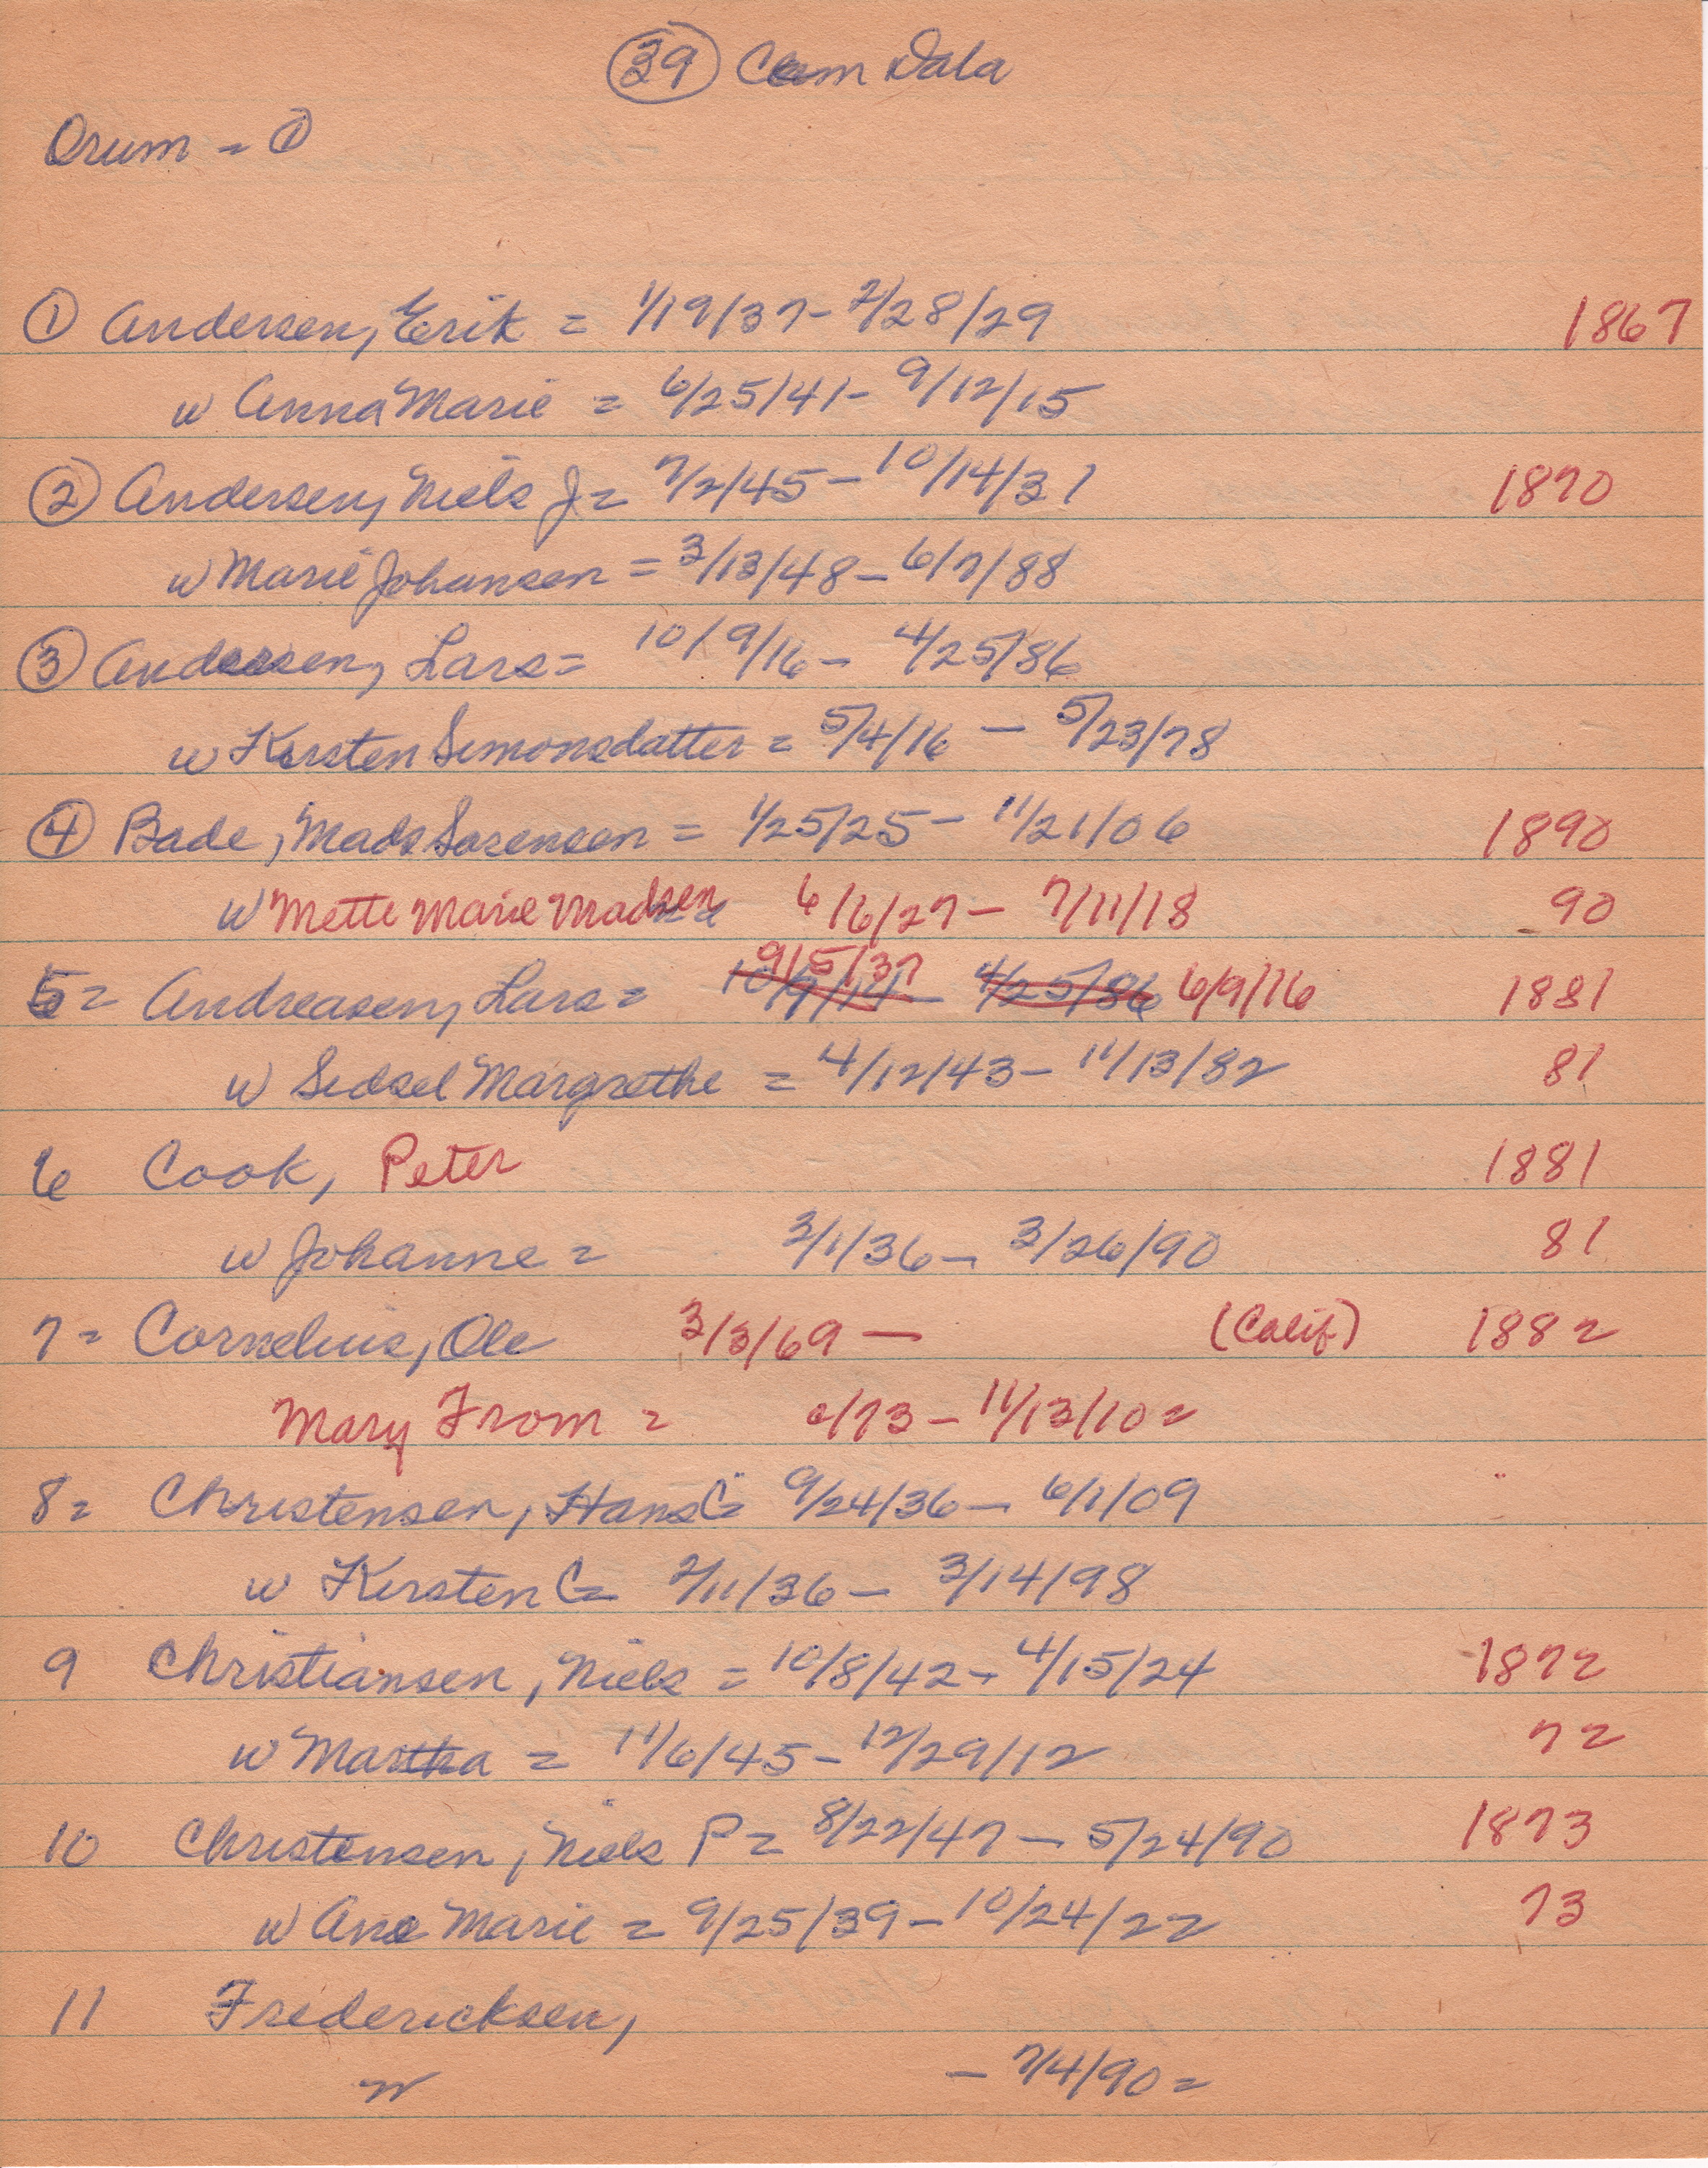 39 Cem Data
Orum - 1
1 Andersen, Erik = 1/19/37 - 2/28/29 1867
w Anna Marie = 6/25/41 - 9/12/15
2 Andersen, Niels J = 7/2/45 - 10/14/31 1870
w Marie Johansen = 3/13/48 - 6/7/88
3 Andersen, Lars = 10/9/16 - 4/25/86
w Kersten Simonsdatter = 5/4/16 - 5/23/78
4 Bade, Mads Sorensen = 1/25/25 - 11/21/06 1890
w Mette Marie Madsen = 6/6/27 - 7/11/18 90
9/5/37
5 = Andreasen, Lars = 10/9/14 - 4/25/86 6/9/16 1881
w Sidsel Margrethe = 4/12/43 - 11/13/82 81
6 Cook, Peter 1881
w Johanne = 3/1/36 - 3/26/90 81
7 = Cornelius, Ole 3/3/69 - (Calif) 1882
Mary From = /73 - 11/13/10 =
8 = Christensen, Hans C = 9/24/36 - 6/1/09
w Kirsten C = 2/11/36 - 3/14/98
9 Christiansen, Niels = 10/8/42 - 4/15/24 1872
w Martha = 11/6/45 - 12/29/12 72
10 Christensen, Niels P = 8/22/47 - 5/24/90 1873
w Ane Marie = 9/25/39 - 10/24/22 73
11 Fredericksen,
w - 7/4/90 =